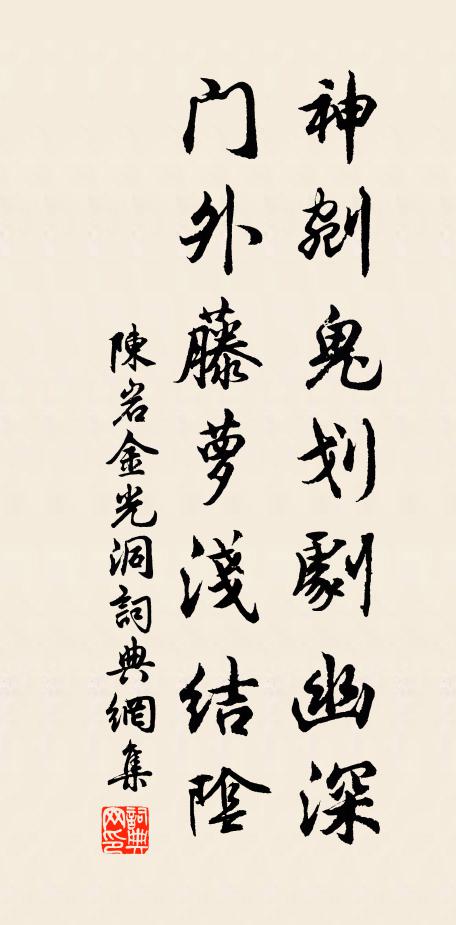 神剜鬼划劇幽深
門外藤萝淺结陰
陳岩金光洞詞典網集
詞典网印